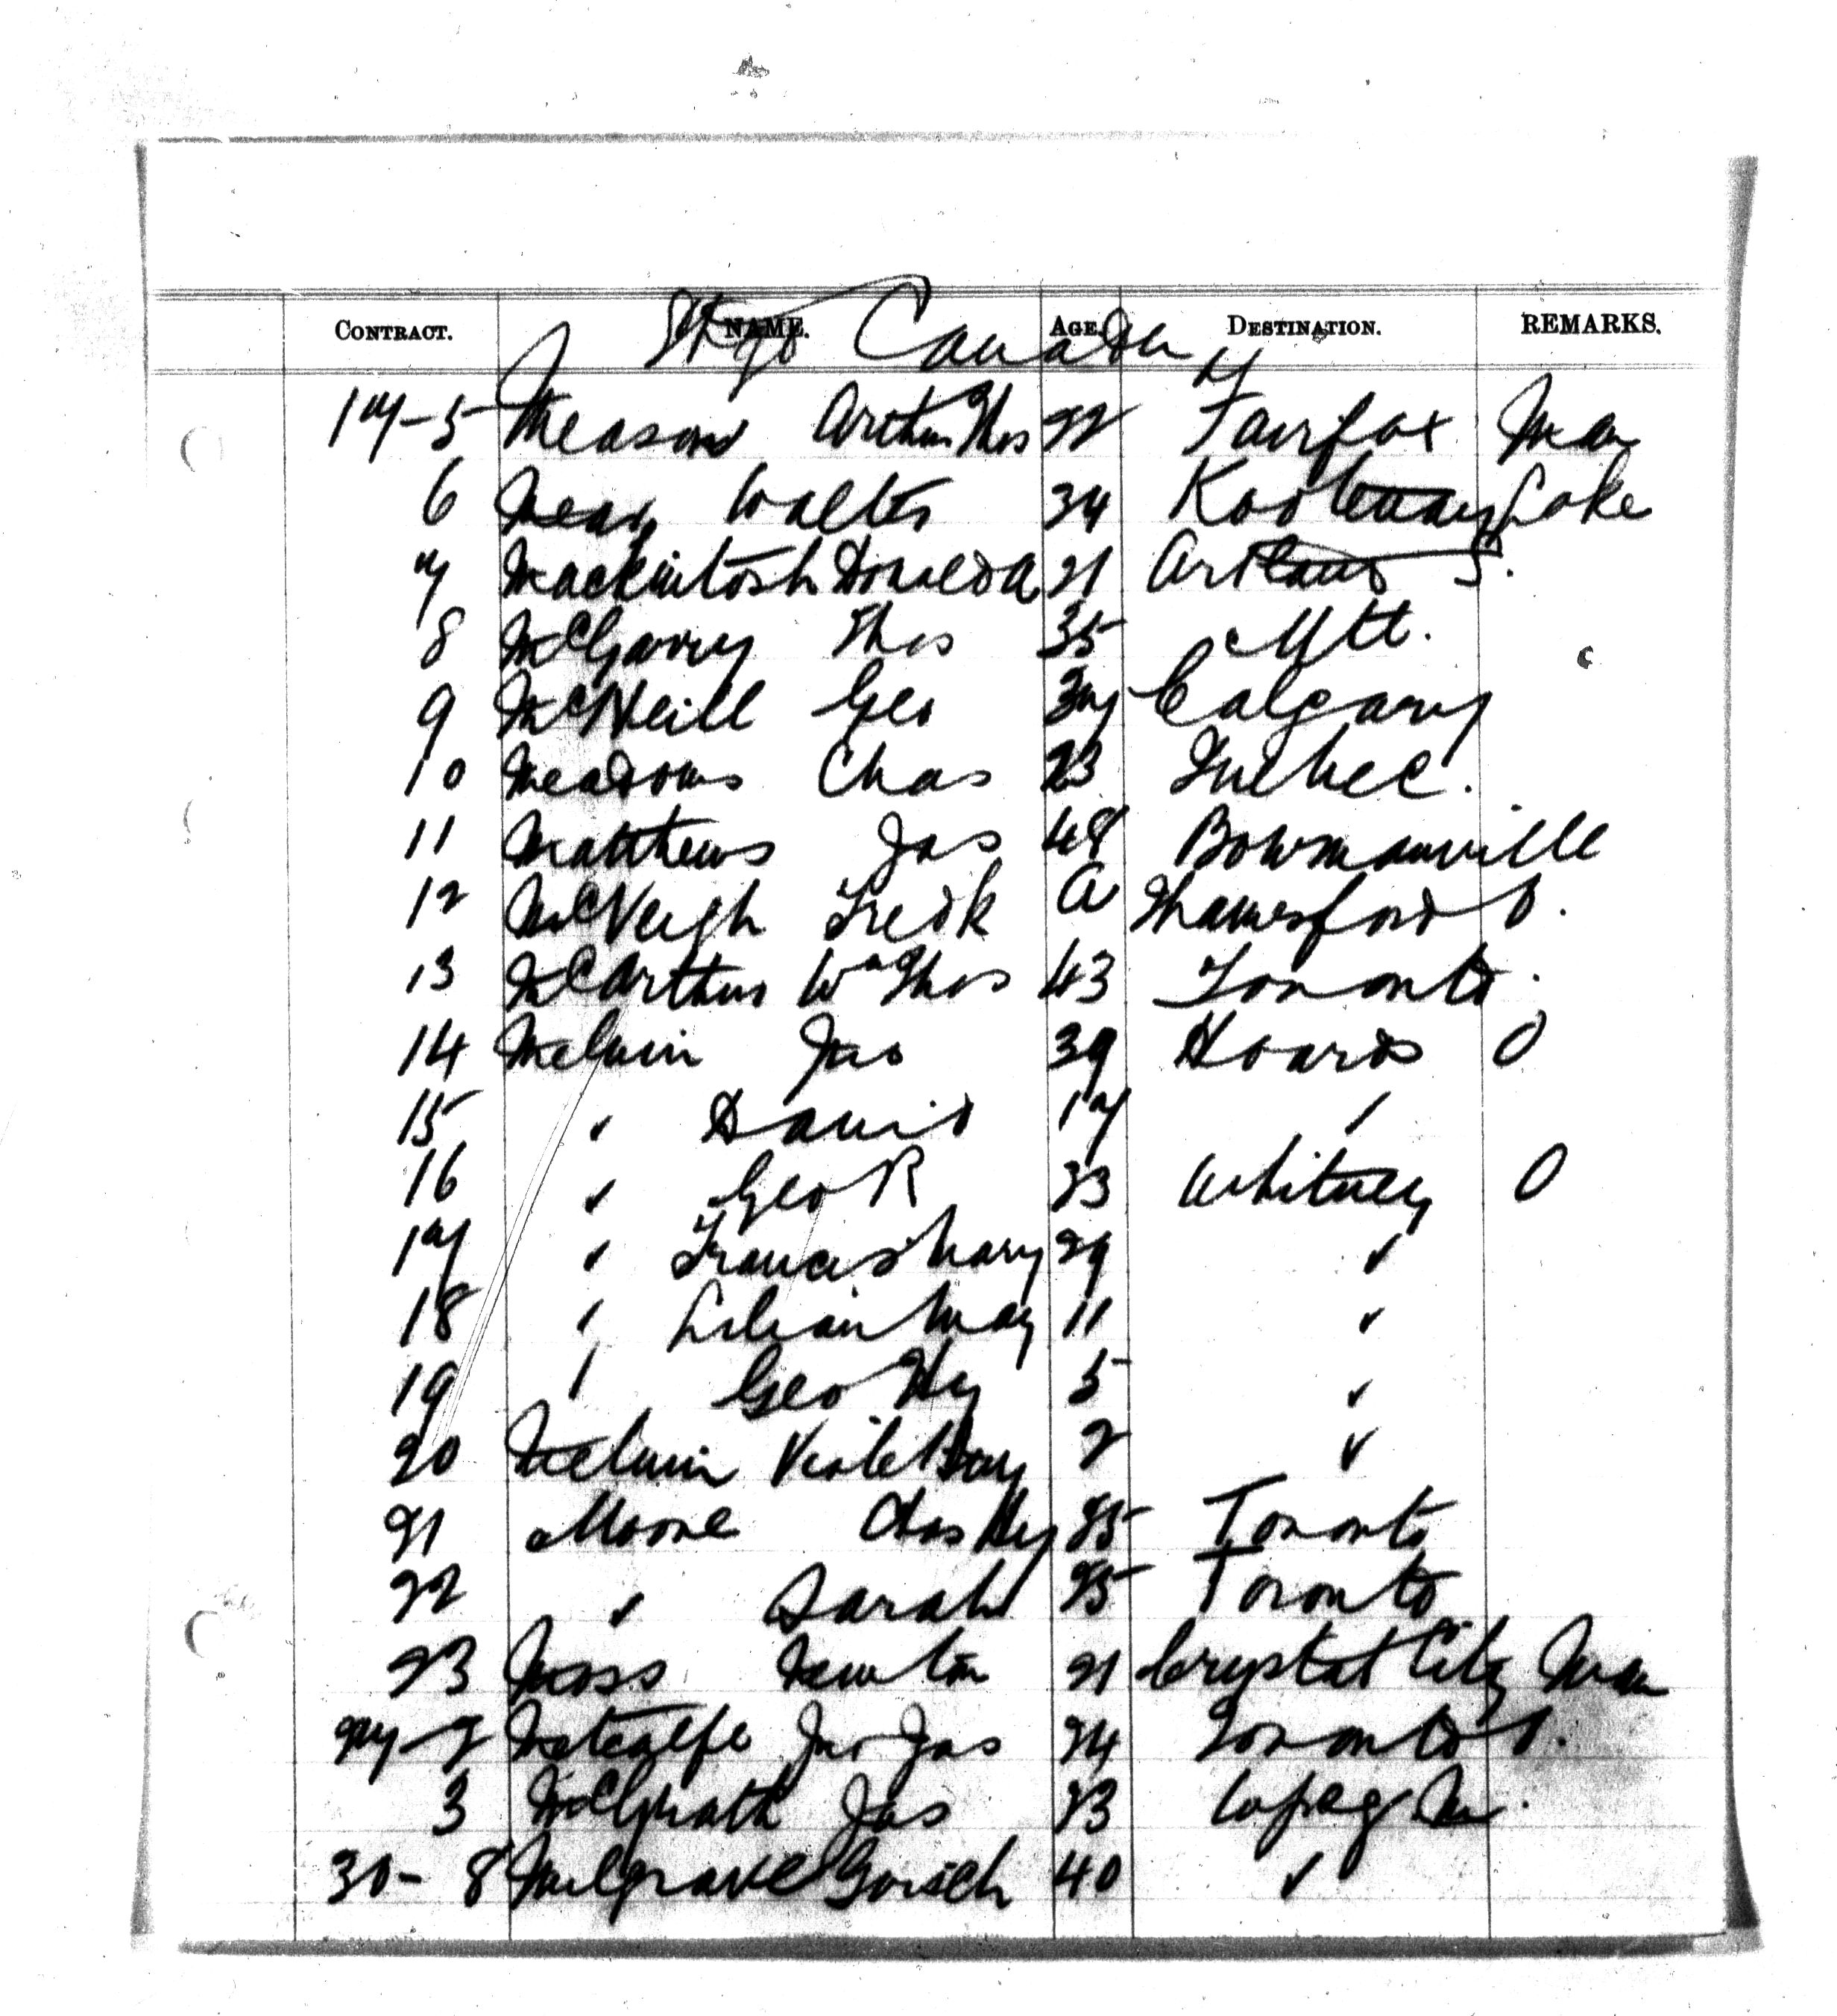 CONTRACT. NAME. AGE. DESTINATION. REMARKS.
Stge Canada
17-5 Meason Arthur Thos 22 Fairfax Man
6 Walter 34 Kootenay Lake
7 Mackintosh Donald A 21 Artland S.
8 McGarry Thos 35 Mtl.
9 McNeill Geo 37 Calgary
10 Meadows Chas 23 Quebec.
11 Matthews Jas 48 Bowmanville
12 McVeigh Fredk A Thamesford O.
13 McArthur Wm Thos 43 Toronto.
14 Melvin Jno 39 Hoards O
15 " David 17 "
16 " Geo R 33 Whitney O
17 " Francis Mary 29 "
18 " Lilian May 11 "
19 " Geo Hy 5 "
20 Melvin Violet May 2 "
21 Moore Chas Hy 25 Toronto
22 " Sarah 25 Toronto
23 Moss Newton 21 Crystal City Man
27-2 Metcalfe Jno Jas 24 Toronto O.
3 McGrath Jas 23 Wpeg M.
30-8 Milgrave 40 "